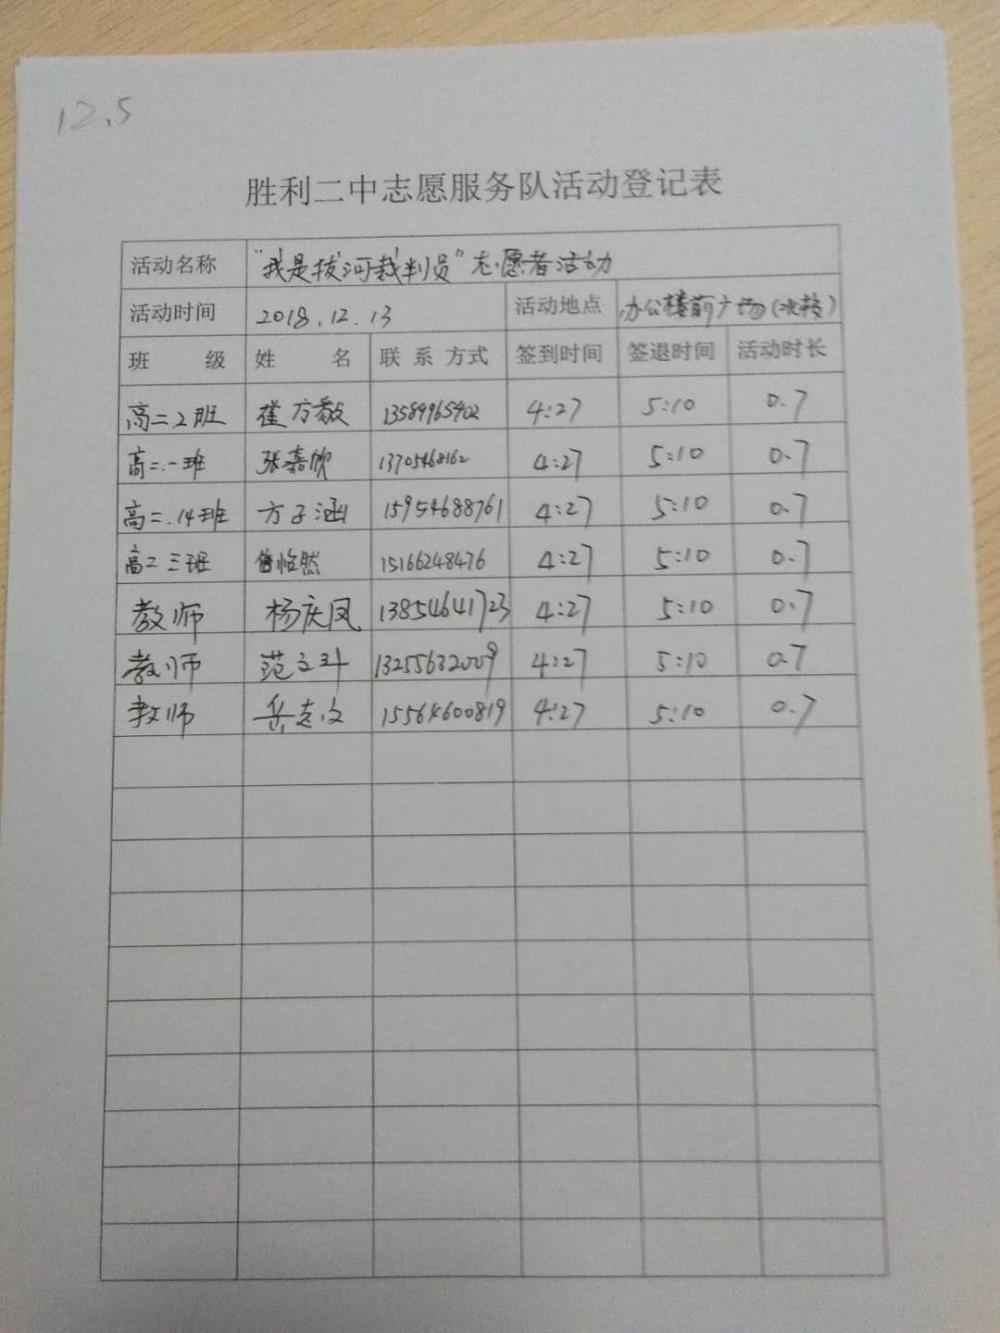 12.5
胜利二中志愿服务队活动登记表
活动名称 "我是拔河裁判员"志愿者活动
活动时间 2018.12.13 活动地点 办公楼前广场(水技)
班 级 姓 名 联系方式 签到时间 签退时间 活动时长
高二2班 崔方毅 13589965902 4:27 5:10 0.7
高二.一班 张嘉欣 13705468162 4:27 5:10 0.7
高二.14班 方子涵 15954688761 4:27 5:10 0.7
高二三班 怡然 15166248476 4:27 5:10 0.7
教师 杨庆凤 13854641723 4:27 5:10 0.7
教师 范文斗 13255632009 4:27 5:10 0.7
教师 岳志文 15564600819 4:27 5:10 0.7